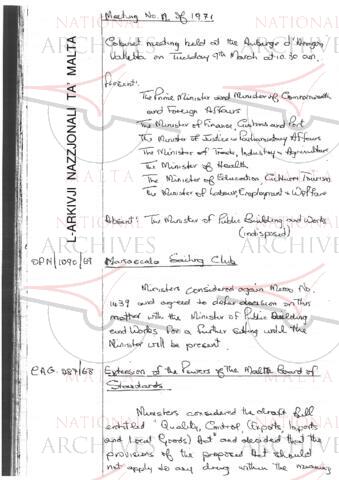 Meeting No. 11 of 1971
Cabinet meeting held at the Auberge d'Aragon,
Valletta on Tuesday 9th March at 10.30 am.
Present:
The Prime Minister and Minister of Commonwealth
and Foreign Affairs
The Minister of Finance, Customs and Port
The Minister of Justice & Parliamentary Affairs
The Minister of Trade, Industry & Agriculture
The Minister of Health
The Minister of Education, Culture & Tourism
The Minister of Labour, Employment & Welfare
Absent: The Minister of Public Building and Works
(indisposed)
OPM/1090/69 Marsaxala Sailing Club
Ministers considered again Memo No.
1439 and agreed to defer decision on this
matter with the Minister of Public Building
and Works for a further sitting when the
Minister will be present.
CAG. 087/68 Extension of the Powers of the Malta Board of
Standards
Ministers considered the draft bill
entitled "Quality Control, (Exports, Imports
and Local Goods) Act" and decided that the
provisions of the proposed Act should
not apply to any drug within the meaning
L-ARKIVJI NAZZJONALI TA' MALTA
NATIONAL
ARCHIVES
MALTA